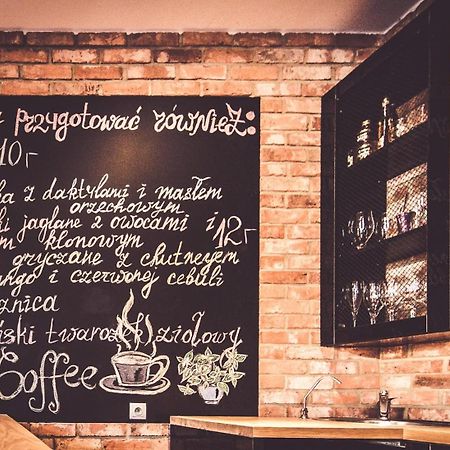 przygotować również:
10
z daktylami i masłem
orzechowym
jaglane z owocami i
klonowym 12
gryczane z chutneyem
i czerwonej cebuli
twaróg ziołowy
Coffee